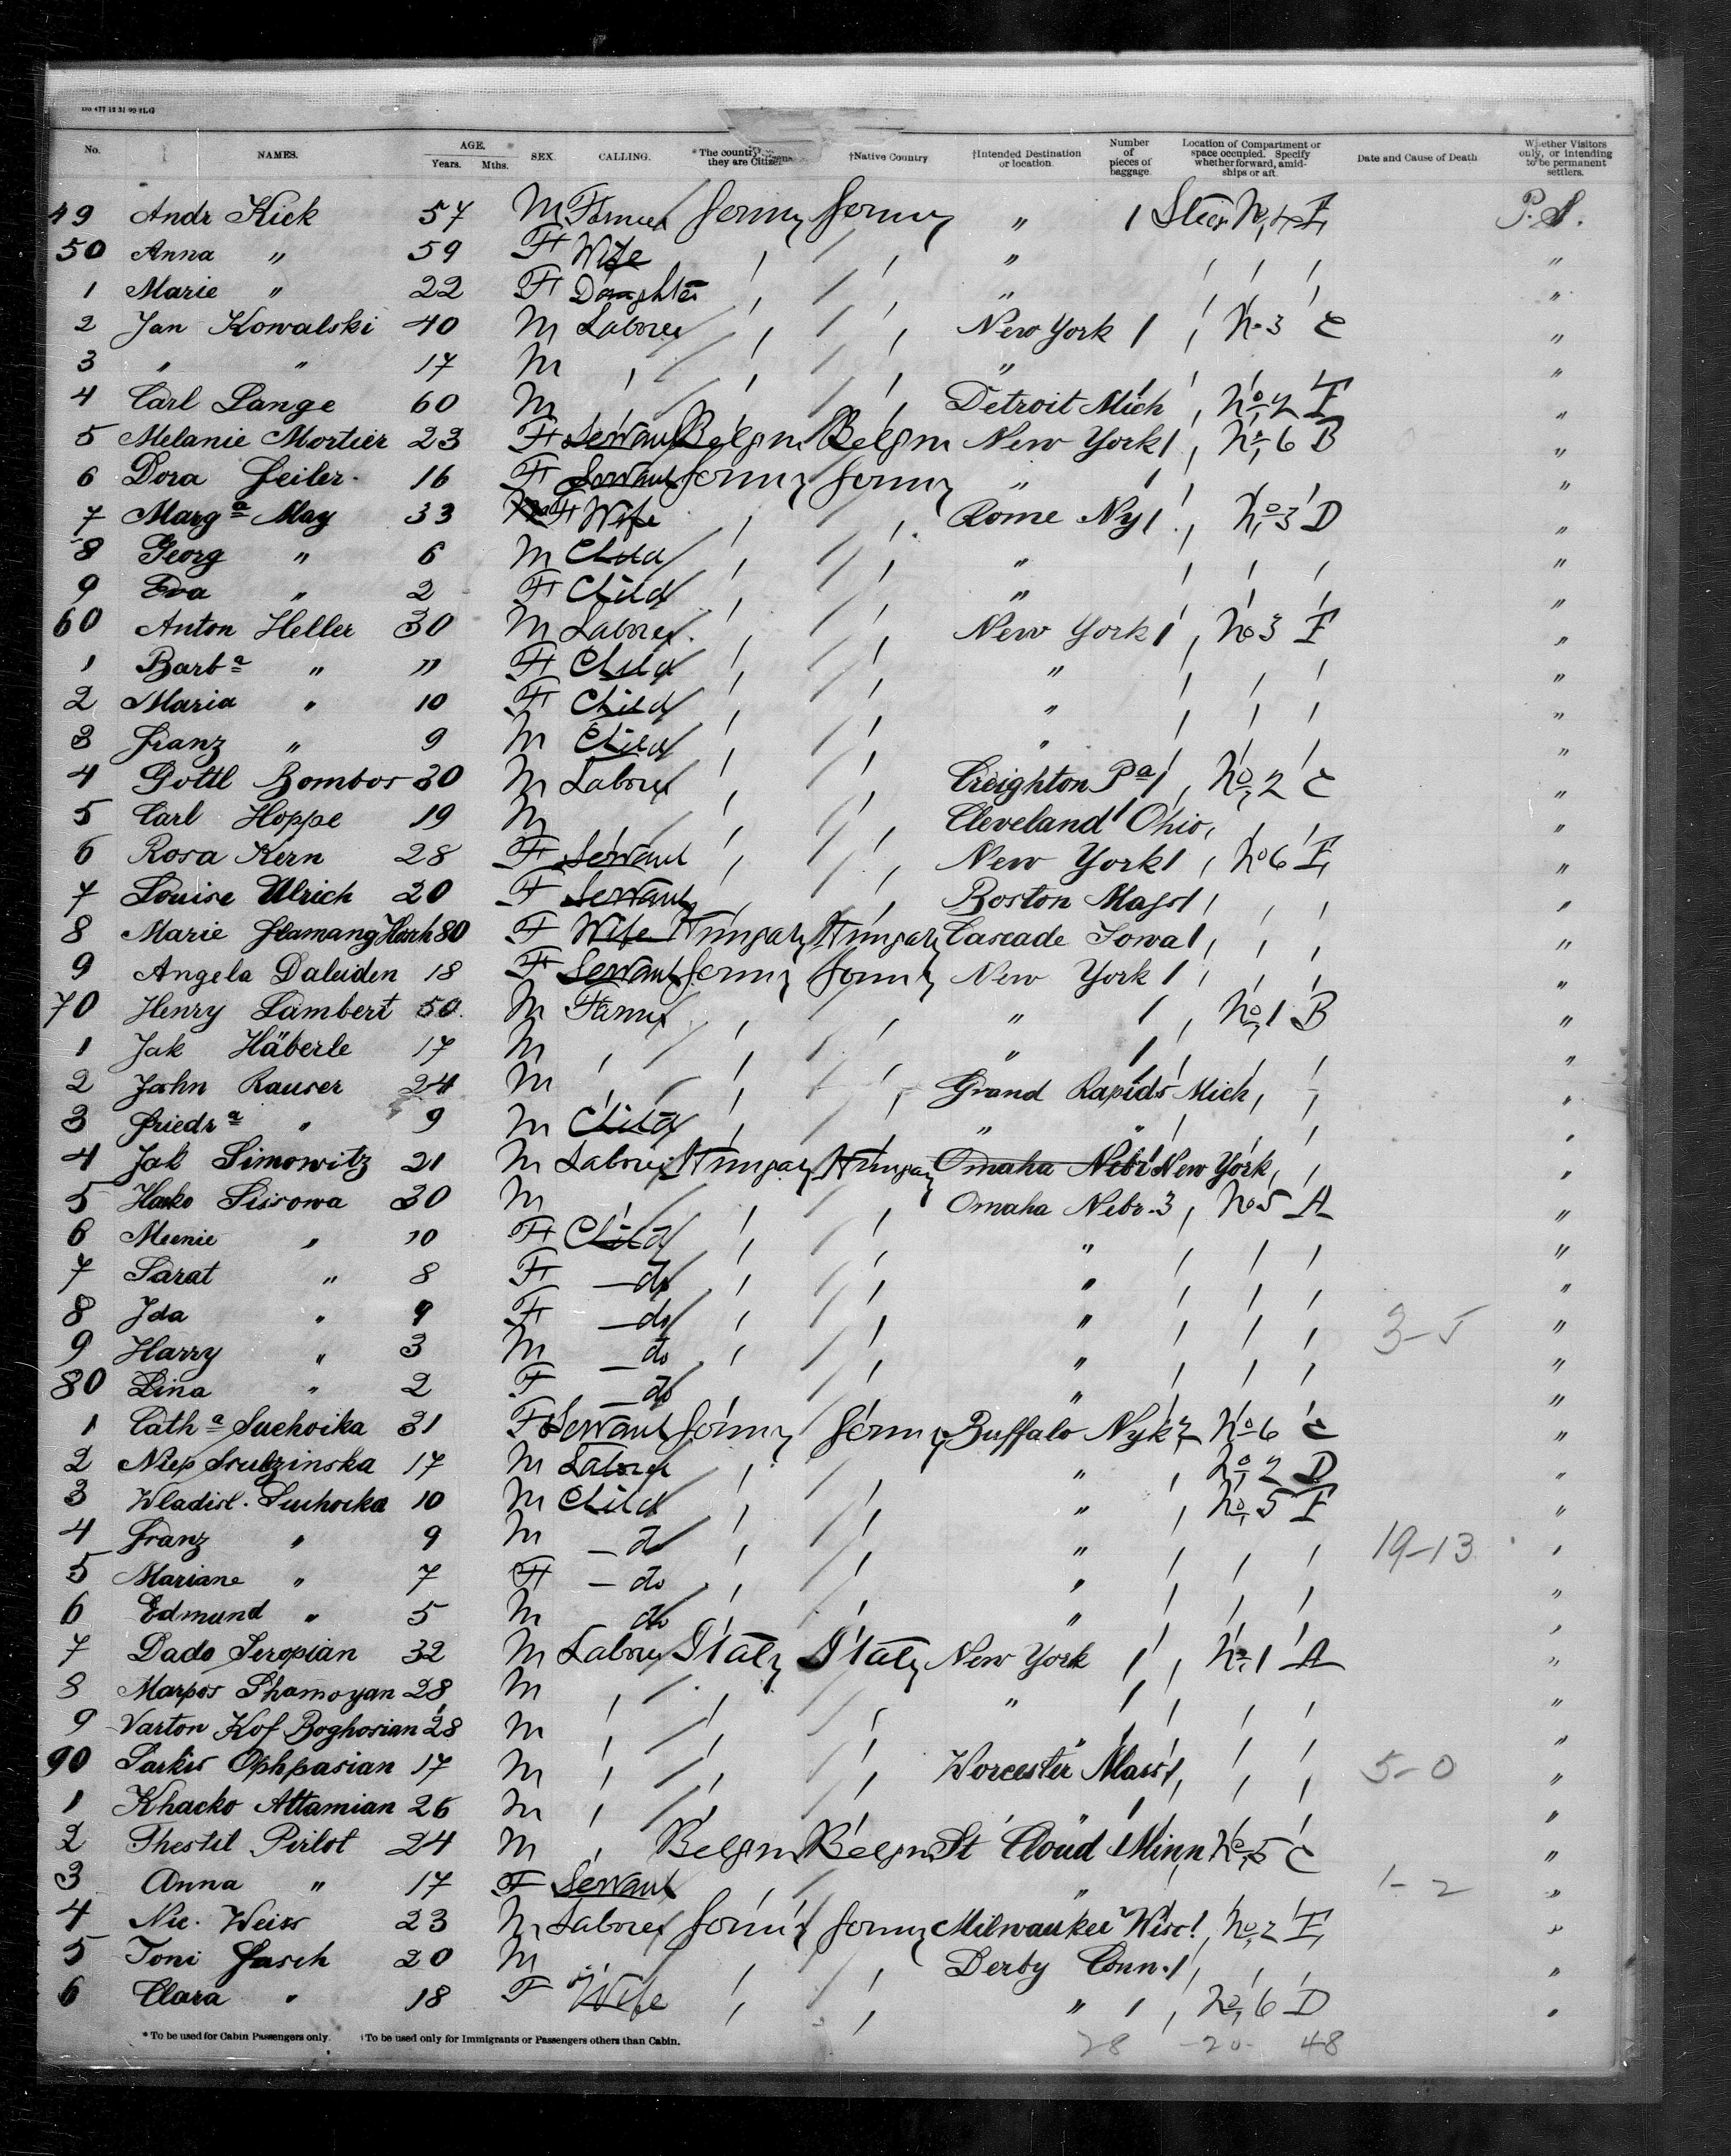 No. NAMES. AGE. Years. Mths. SEX. CALLING. *The country they are Citizens †Native Country †Intended Destination or location. Number of pieces of baggage. Location of Compartment or space occupied. Specify whether forward, amidships or aft. Date and Cause of Death Whether Visitors only, or intending to be permanent settlers.
49 Andr Kick 57 M Farmer Germy Germy " 1 P. S.
50 Anna " 59 F Wife " "
1 Marie " 22 F Daughter " "
2 Jan Kowalski 40 M Laborer New York 1 No 3 C "
3 " " 17 M " "
4 Carl Lange 60 M Detroit Mich No 2 F "
5 Melanie Mortier 23 F Servant Belgm Belgm New York 1 No 6 B "
6 Dora Feiler 16 F Servant Germy Germy " 1 "
7 Marga May 33 F Wife Rome Ny 1 No 3 D "
8 Georg " 6 M Child " "
9 Eva " 2 F Child " "
60 Anton Heller 30 M Laborer New York 1 No 3 F "
1 Barba " 11 F Child " "
2 Maria " 10 F Child " "
3 Franz " 9 M Child " "
4 Gottl Bombos 30 M Laborer Creighton Pa 1 No 2 C "
5 Carl Hoppe 19 M Cleveland Ohio "
6 Rosa Kern 28 F Servant New York 1 No 6 F "
7 Louise Ulrich 20 F Servant Boston Mass 1 "
8 Marie Flamang 80 F Wife Hungary Hungary Cascade Iowa 1 "
9 Angela Daleiden 18 F Servant Germy Germy New York 1 "
70 Henry Lambert 50 M Farmer " 1 No 1 B "
1 Jak Häberle 17 M " 1 "
2 John Rauser 24 M Grand Rapids Mich "
3 Friedra " 9 M Child " " "
4 Jak Simowitz 21 M Laborer Hungary Hungary Omaha Nebr New York "
5 Hanko Sissowa 30 M Omaha Nebr 3 No 5 A "
6 Meenie " 10 F Child " "
7 Sarat " 8 F do " "
8 Ida " 9 F do " 3-5 "
9 Harry " 3 M do " "
80 Lina " 2 F do " "
1 Catha Suchoika 31 F Servant Germy Germy Buffalo Nyk 2 No 6 C "
2 17 M Laborer " No 2 D "
3 Wladisl. Suchoika 10 M Child " No 5 F "
4 Franz " 9 M do " 19-13 "
5 Mariane " 7 F do " "
6 Edmund " 5 M do " "
7 Dado Seropian 32 M Laborer Italy Italy New York 1 No 1 A "
8 Marpos Shamoyan 28 M " 1 "
9 Varton Kof Boghosian 28 M " "
90 Sarkis Ophpasian 17 M Worcester Mass 1 5-0 "
1 Khacko Altamian 26 M " "
2 Thestil Pirlot 24 M Belgm Belgm St Cloud Minn No 5 C "
3 Anna " 17 F Servant " 1-2 "
4 Nic. Weiss 23 M Laborer Germy Germy Milwaukee Wisc 1 No 2 F "
5 Toni Jasch 20 M Derby Conn. 1 "
6 Clara " 18 F Wife " 1 No 6 D "
* To be used for Cabin Passengers only. †To be used only for Immigrants or Passengers others than Cabin.
28 -20- 48